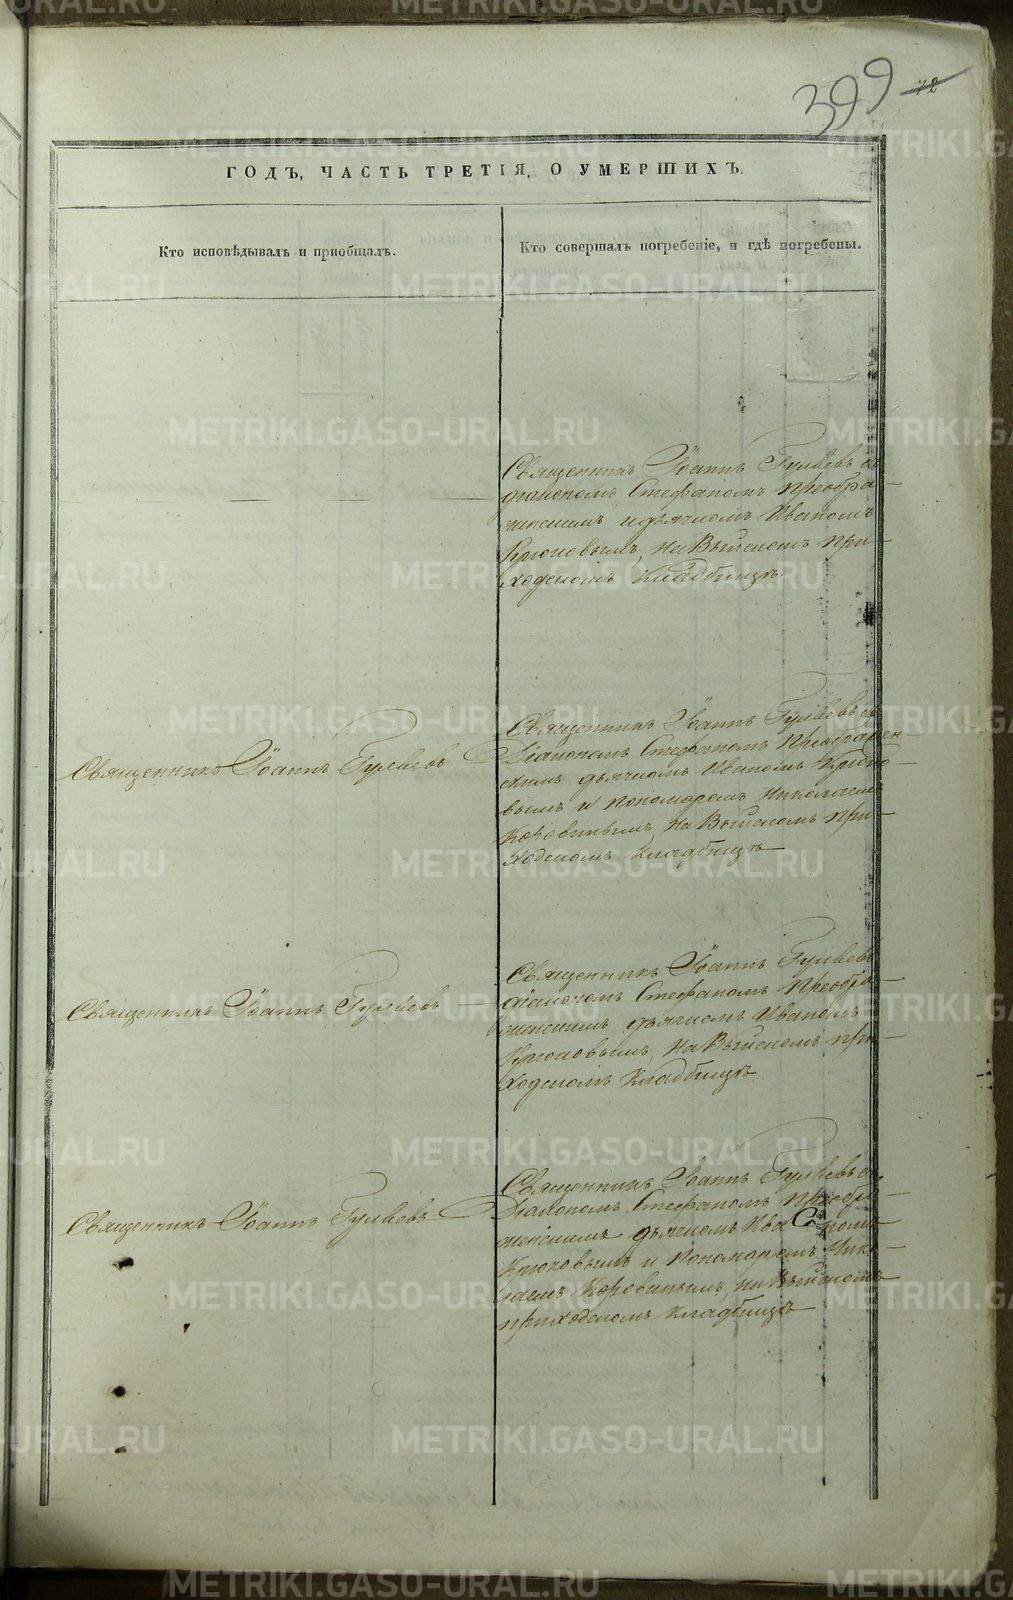 399 72
ГОДЪ, ЧАСТЬ ТРЕТІЯ, О УМЕРШИХЪ.
Кто исповѣдывалъ и пріобщалъ.
Кто совершалъ погребеніе, и гдѣ погребены.
Священникъ Іоаннъ Гуляевъ съ
діакономъ Стефаномъ Преобра-
женскимъ и дьячкомъ Иваномъ
Крюковымъ, на Выйскомъ при-
ходскомъ кладбищѣ.
Священникъ Іоаннъ Гуляевъ
Священникъ Іоаннъ Гуляевъ съ
Діакономъ Стефаномъ Преображен
скимъ дьячкомъ Иваномъ Крюко-
вымъ и пономаремъ Николаемъ
Коровинымъ, на Выйскомъ при-
ходскомъ кладбищѣ
Священникъ Іоаннъ Гуляевъ
Священникъ Іоаннъ Гуляевъ
діакономъ Стефаномъ Преобра-
женскимъ дьячкомъ Иваномъ
Крюковымъ, на Выйскомъ при-
ходскомъ кладбищѣ
Священникъ Іоаннъ Гуляевъ
Священникъ Іоаннъ Гуляевъ съ
Діакономъ Стефаномъ Преобра-
женскимъ дьячкомъ Иваномъ
Крюковымъ и Пономаремъ Нико-
лаемъ Коровинымъ, на Выйскомъ
приходскомъ кладбищѣ
METRIKI.GASO-URAL.RU